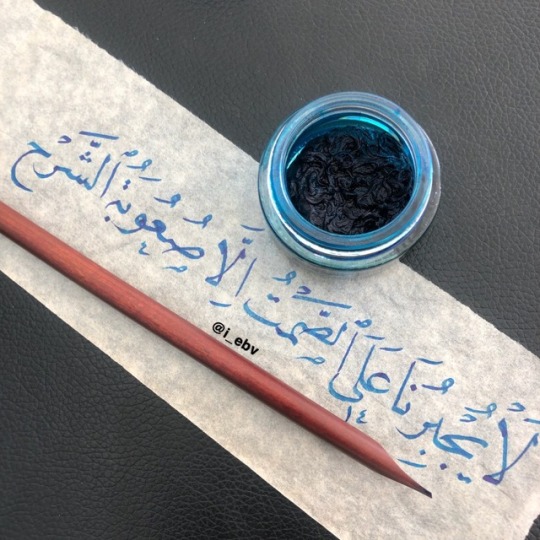 لَا يُجْبِرُنَا عَلَى الصَّمْتُ إِلَّا صُعُوبَةُ الشَّرْح
@i_ebv